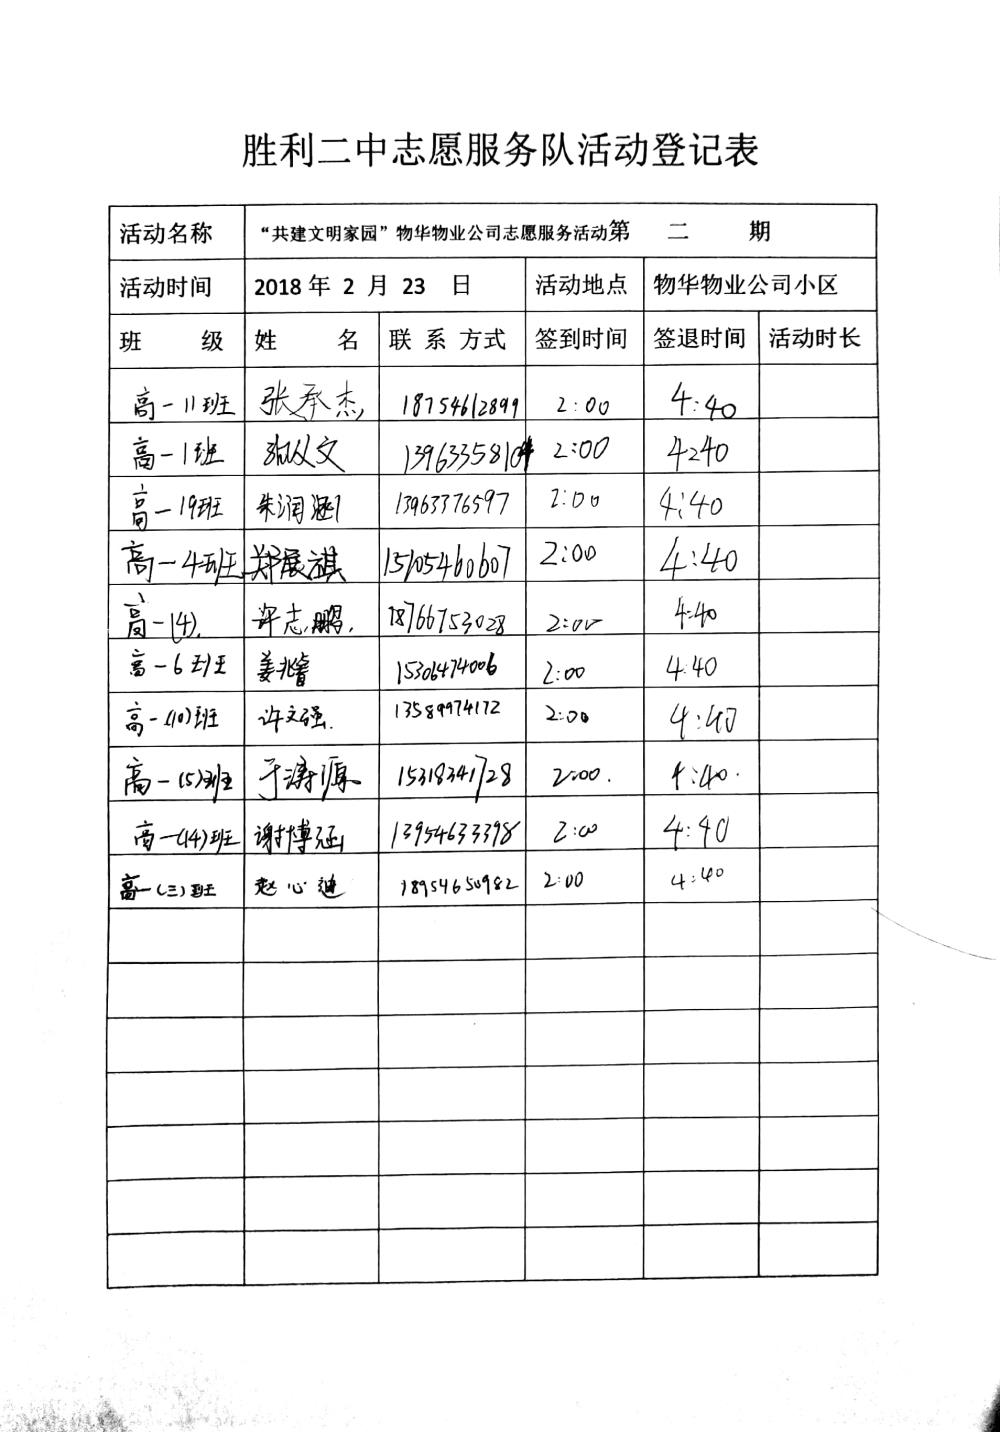 胜利二中志愿服务队活动登记表
活动名称 “共建文明家园”物华物业公司志愿服务活动第 二 期
活动时间 2018 年 2 月 23 日 活动地点 物华物业公司小区
班 级 姓 名 联 系 方式 签到时间 签退时间 活动时长
高一11班 张承杰 18754612899 2:00 4:40
高一1班 张从文 1396335810 2:00 4:40
高一19班 朱润涵 13963376597 2:00 4:40
高一4班 郑展祺 15105460607 2:00 4:40
高一(4). 许志鹏. 18766753028 2:00 4:40
高一6班 姜兆睿 15306474006 2:00 4:40
高一(10)班 许文强. 13589974172 2:00 4:40
高一(5)班 于涛源 15318341728 2:00. 4:40.
高一(14)班 谢博涵 13954633398 2:00 4:40
高一(三)班 赵心迪 18954650982 2:00 4:40